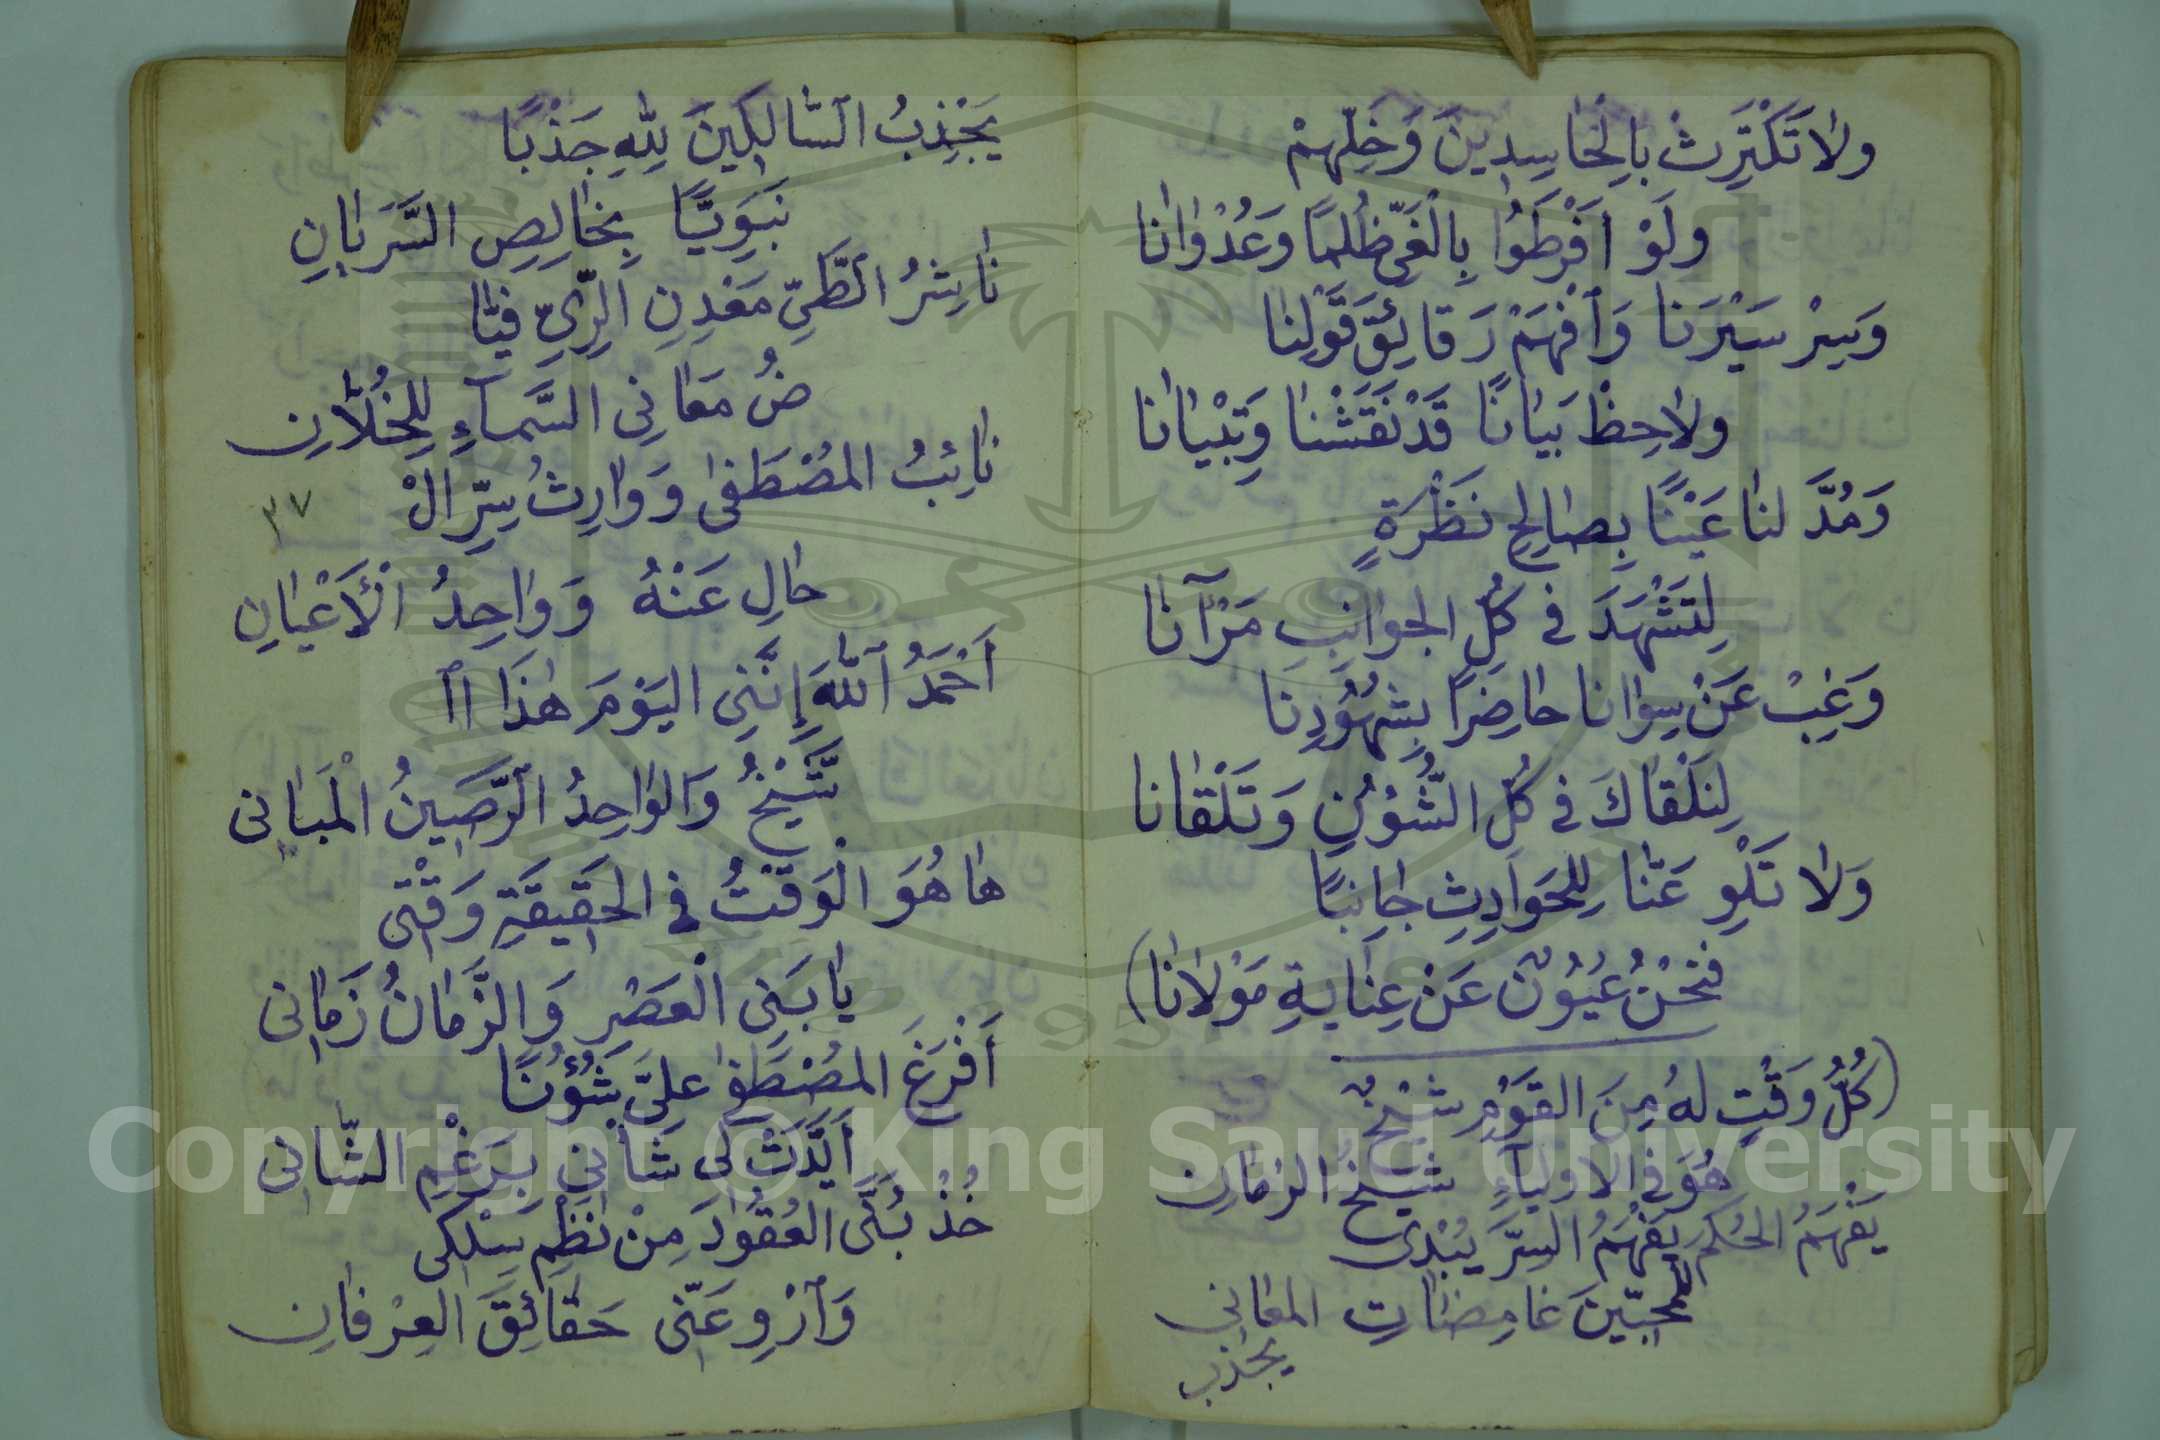 ولا تَكْتَرِثْ بِالحَاسِدِينَ وَخَلِّهِمْ
ولَوْ اَفْرَطُوا بِالْغَيِّ ظُلْمًا وَعُدْوَانا
وَسِرْ سَيْرَنا وَافْهَمْ رَقَائِقَ قَوْلِنا
ولاحِظْ بَيَانًا قَدْ نَقَشْنا وَتِبْيَانا
وَمُدَّ لنا عَيْنًا بِصالِحِ نَظْرَةٍ
لِتَشْهَدَ فى كُلِّ الجوانِبِ مَرْآنا
وَغِبْ عَنْ سِوَانا حاضِرًا بِشُهُودِنا
لِنَلْقَاكَ فى كُلِّ الشُّؤُنِ وَتَلْقَانا
وَلا تَلْوِ عَنَّا لِلحَوَادِثِ جَانِبًا
فَنَحْنُ عُيُونٌ عَنْ عِنَايةِ مَوْلانا)
(كُلُّ وَقْتٍ لهُ مِنَ القَوْمِ شَيْخٌ
هُوَ فى الاولياَءِ شَيْخُ الزمَانِ
يَفْهَمُ الحُكمَ يَفْهَمُ السِرَّ يُبْدى
لِلمُحِبّينَ غامِضَاتِ المعَانى
يجذب
يَجْذِبُ السَّالِكِينَ لِلّٰهِ جَذْبًا
نَبَوِيًّا بِخَالِصِ السَّرَيَانِ
نَاشِرُ الطَّيِّ مَعْدِنِ الرِّيِّ فيَّا
ضُ مَعَانِى السَّمآءِ لِلخُلّانِ
نَائِبُ المُصْطَفىٰ وَوَارِثُ سِرِّ الْ
٣٧
حَالِ عَنْهُ وَوَاحِدُ الْأَعْيَانِ
اَحْمَدُ اللّٰهَ إِنَّنِى اليَوْمَ هٰذَا ال
شَّيْخُ وَالوَاحِدُ الرَّصِينُ الْمَبَانى
هَا هُوَ الْوَقْتُ فى الحَقِيقَةِ وَقْتى
يَا بَنِى الْعَصْرِ وَالزَّمَانُ زَمَانى
اَفْرَغَ المُصْطَفىٰ عليَّ شُؤُنًا
اَيَّدَتْ لى شَأنى بِرَغْمِ الشَّانى
خُذْ بُنَىَّ العُقُودَ مِنْ نَظْمِ سِلْكى
وَارْوِ عَنّى حَقَائِقَ العِرْفَانِ
Copyright © King Saud University